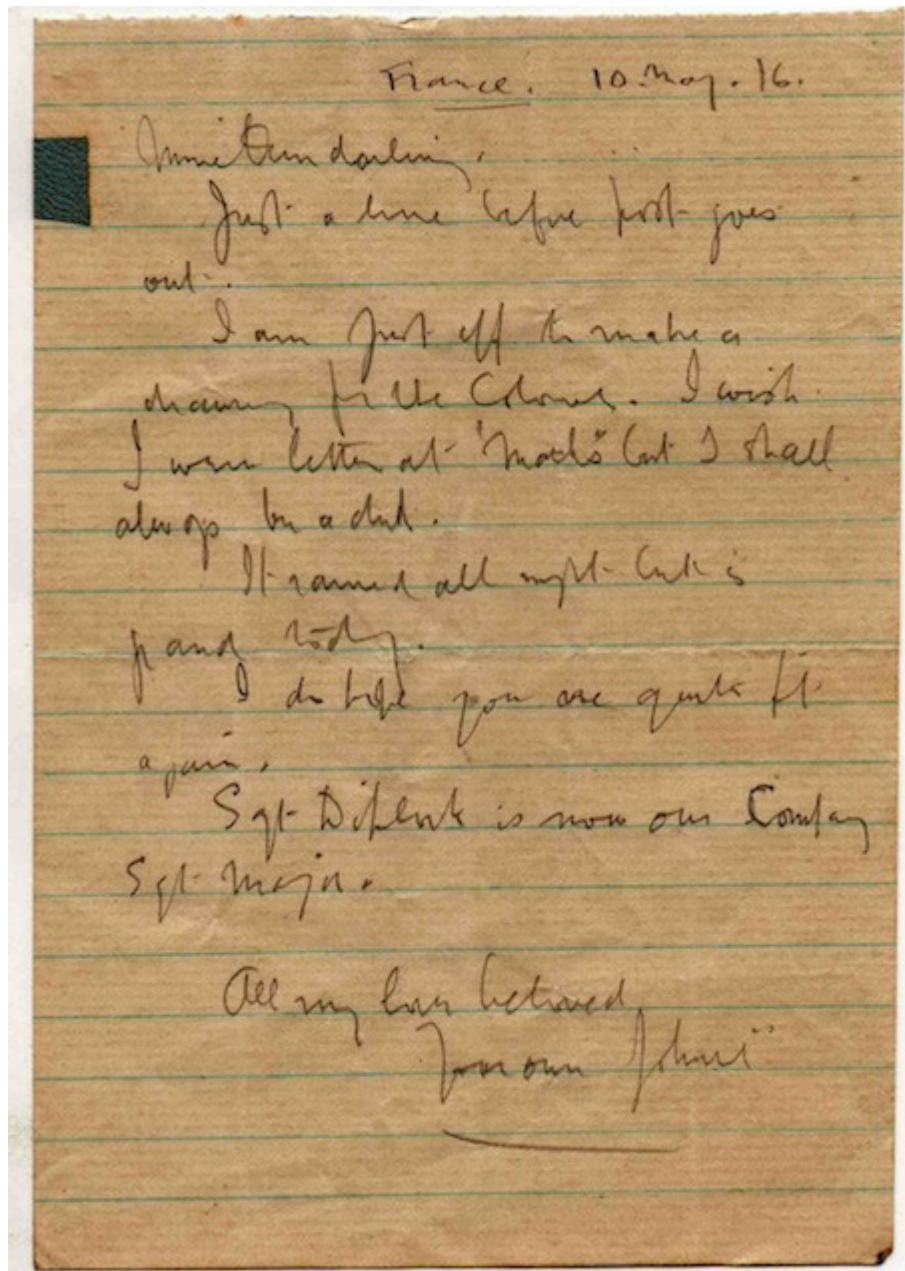 France. 10 May. 16.
Mine Own darling.
Just a line before post goes
out.
I am just off to make a
drawing for the Colonel. I wish
I were better at "Maths" but I shall
always be a dud.
It rained all night but is
grand today.
I do hope you are quite fit
again.
Sgt Diplock is now our Company
Sgt Major.
All my love beloved
Your own Johnie